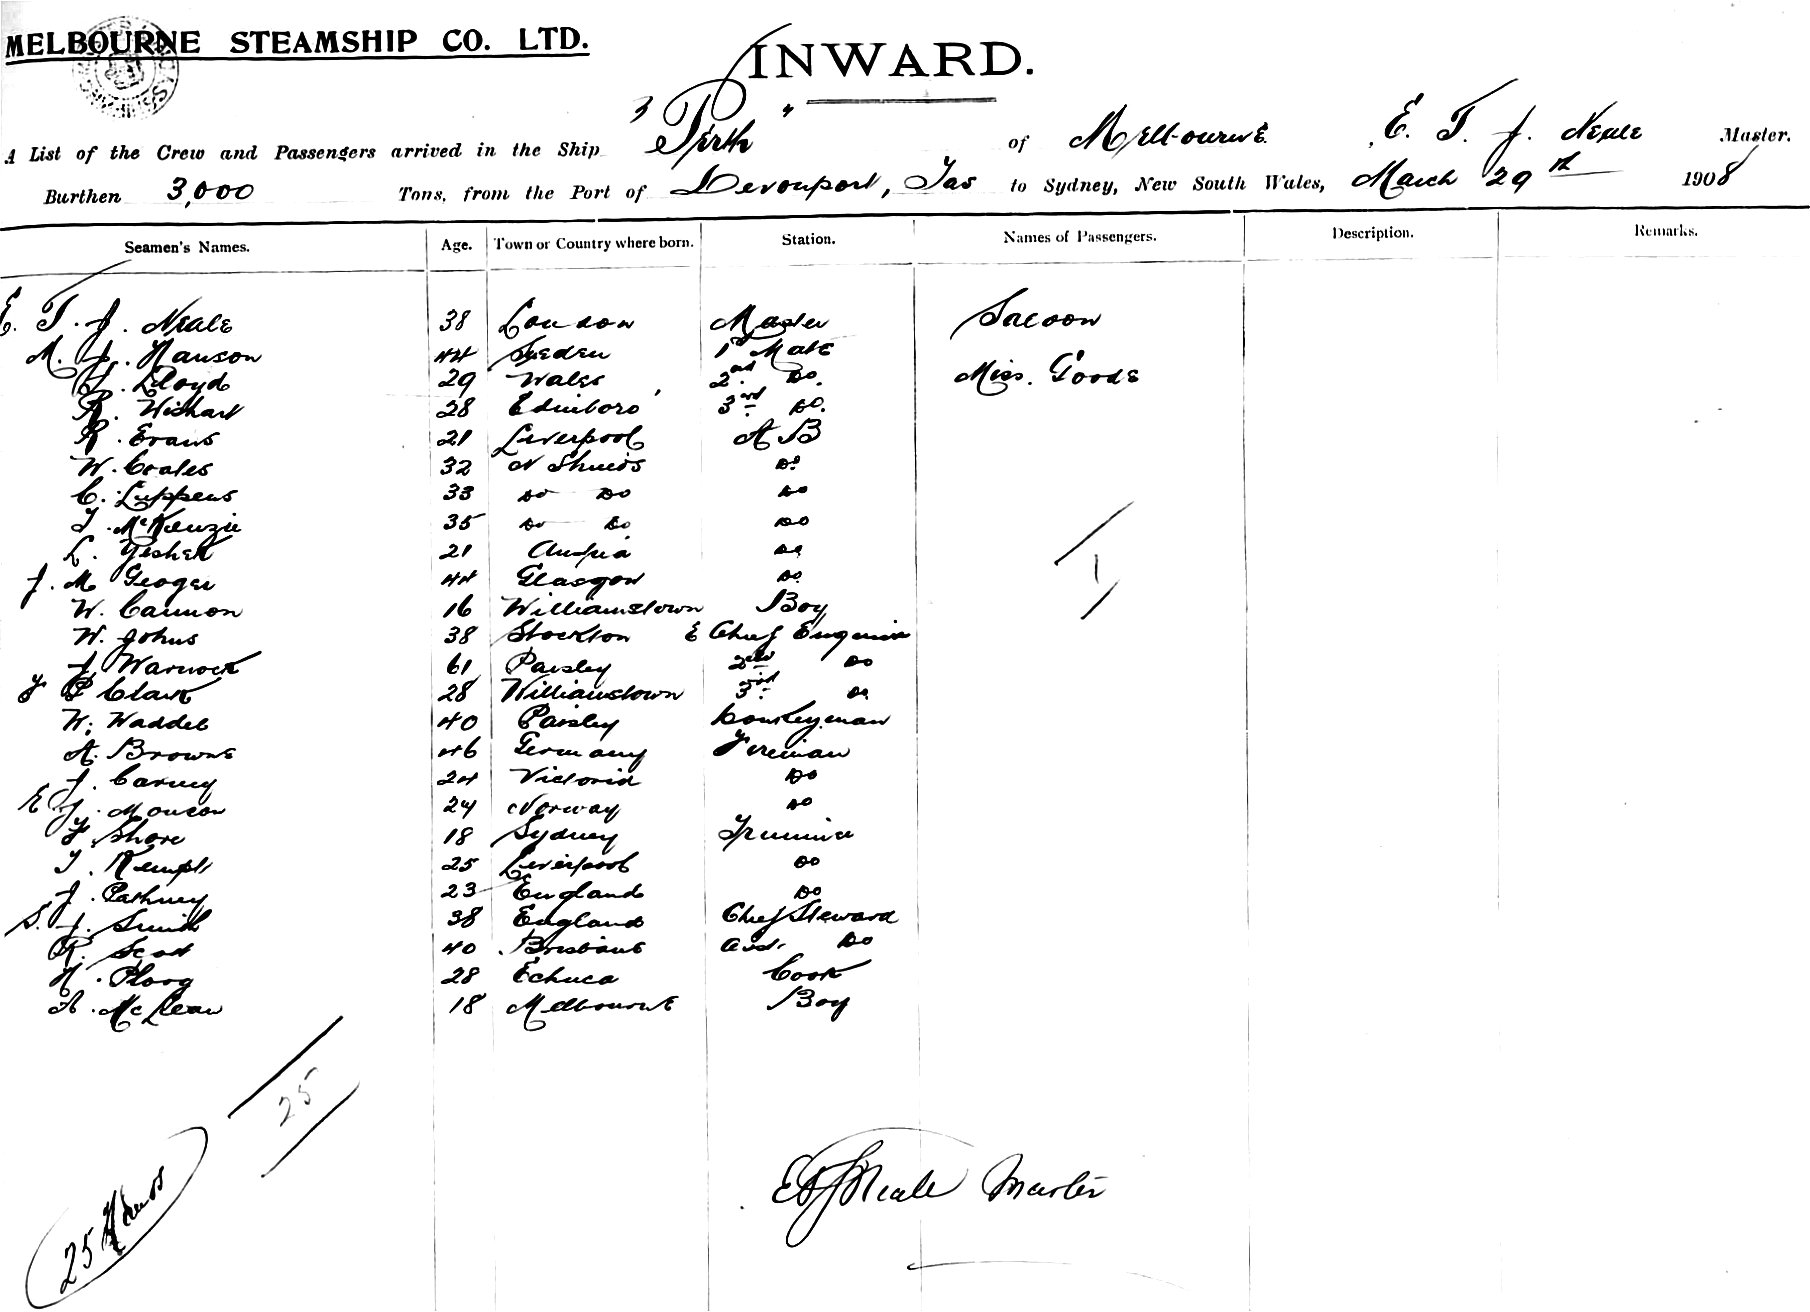 MELBOURNE STEAMSHIP CO. LTD.
INWARD.
A List of the Crew and Passengers arrived in the Ship "Perth" of Melbourne. E. T. J. Neale Master.
Burthen 3,000 Tons, from the Port of Devonport, Tas to Sydney, New South Wales, March 29th 1908
Seamen's Names. Age. Town or Country where born. Station. Names of Passengers. Description. Remarks.
E. T. J. Neale 38 London Master Saloon
M. J. Hanson 44 Sweden 1st Mate
Lloyd 29 Wales 2nd Do. Miss. Goode
R. Wishart 28 Edinboro' 3rd Do.
R. Evans 21 Liverpool A B
W. Coales 32 N Shields Do
C. Luppens 33 Do Do Do
T. McKenzie 35 Do Do Do
L. 21 Austria Do
J. M 44 Glasgow Do.
W. Cannon 16 Williamstown Boy
W. Johns 38 Stockton E Chief Engineer
J. Warnock 61 Paisley 2nd Do
F P Clark 28 Williamstown 3rd Do
W. Waddel 40 Paisley Donkeyman
A. Browne 46 Germany Fireman
J. Carney 24 Victoria Do
E J. Monson 24 Norway Do
F Shore 18 Sydney Trimmer
T. Kempt 25 Liverpool Do
J. 23 England Do
S. J. Smith 38 England Chief Steward
R. Scott 40 Brisbane 2nd. Do
H. Ploog 28 Echuca Cook
A. McLean 18 Melbourne Boy
1
25
25 Hands
E T J Neale Master